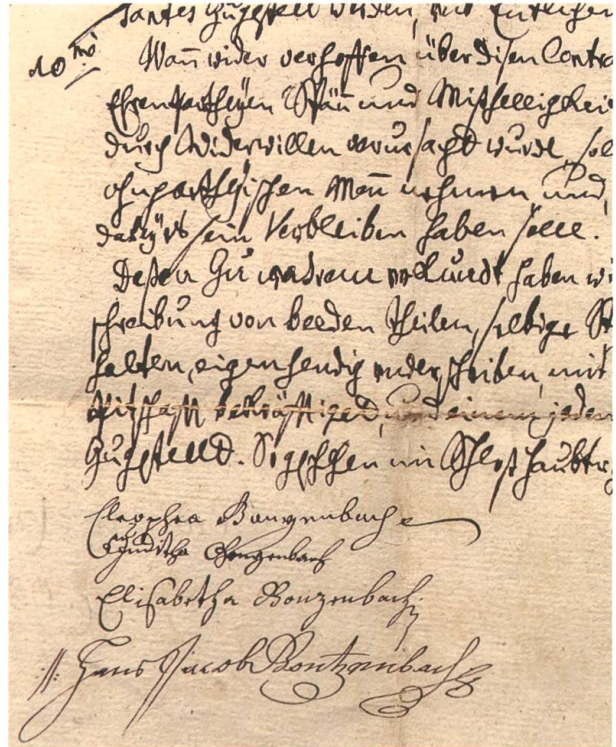 santes Zugestelt werden, mit
10mo Wan wider verhoffen über disen Contra
Ehrenpartheÿen Spän und Mißhelligkei
durch Widerwillen verursacht wurde, sol
ohnpartheÿischen Man nehmen und
sein Verbleiben haben solle.
Deßen Zu wahrem vrkundt haben wi
schreibung von beeden theilen, selbige
halten, eigenhendig vnderschriben, mit
Pitschafft bekräfftiget, und einem jeden
Zugestelld. So geschehen im Schloß haubtw
Cleophea Bongenbach
Juditha Gonzenbach
Elisabetha Gonzenbach
Hans Jacob Gontzenbach